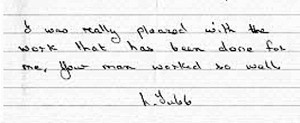 I was really pleased with the
work that has been done for
me, Your man worked so well
L. Tubb